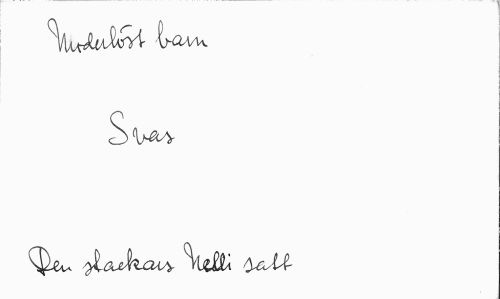 Moderlöst barn
Svas
Den stackars Nelli satt